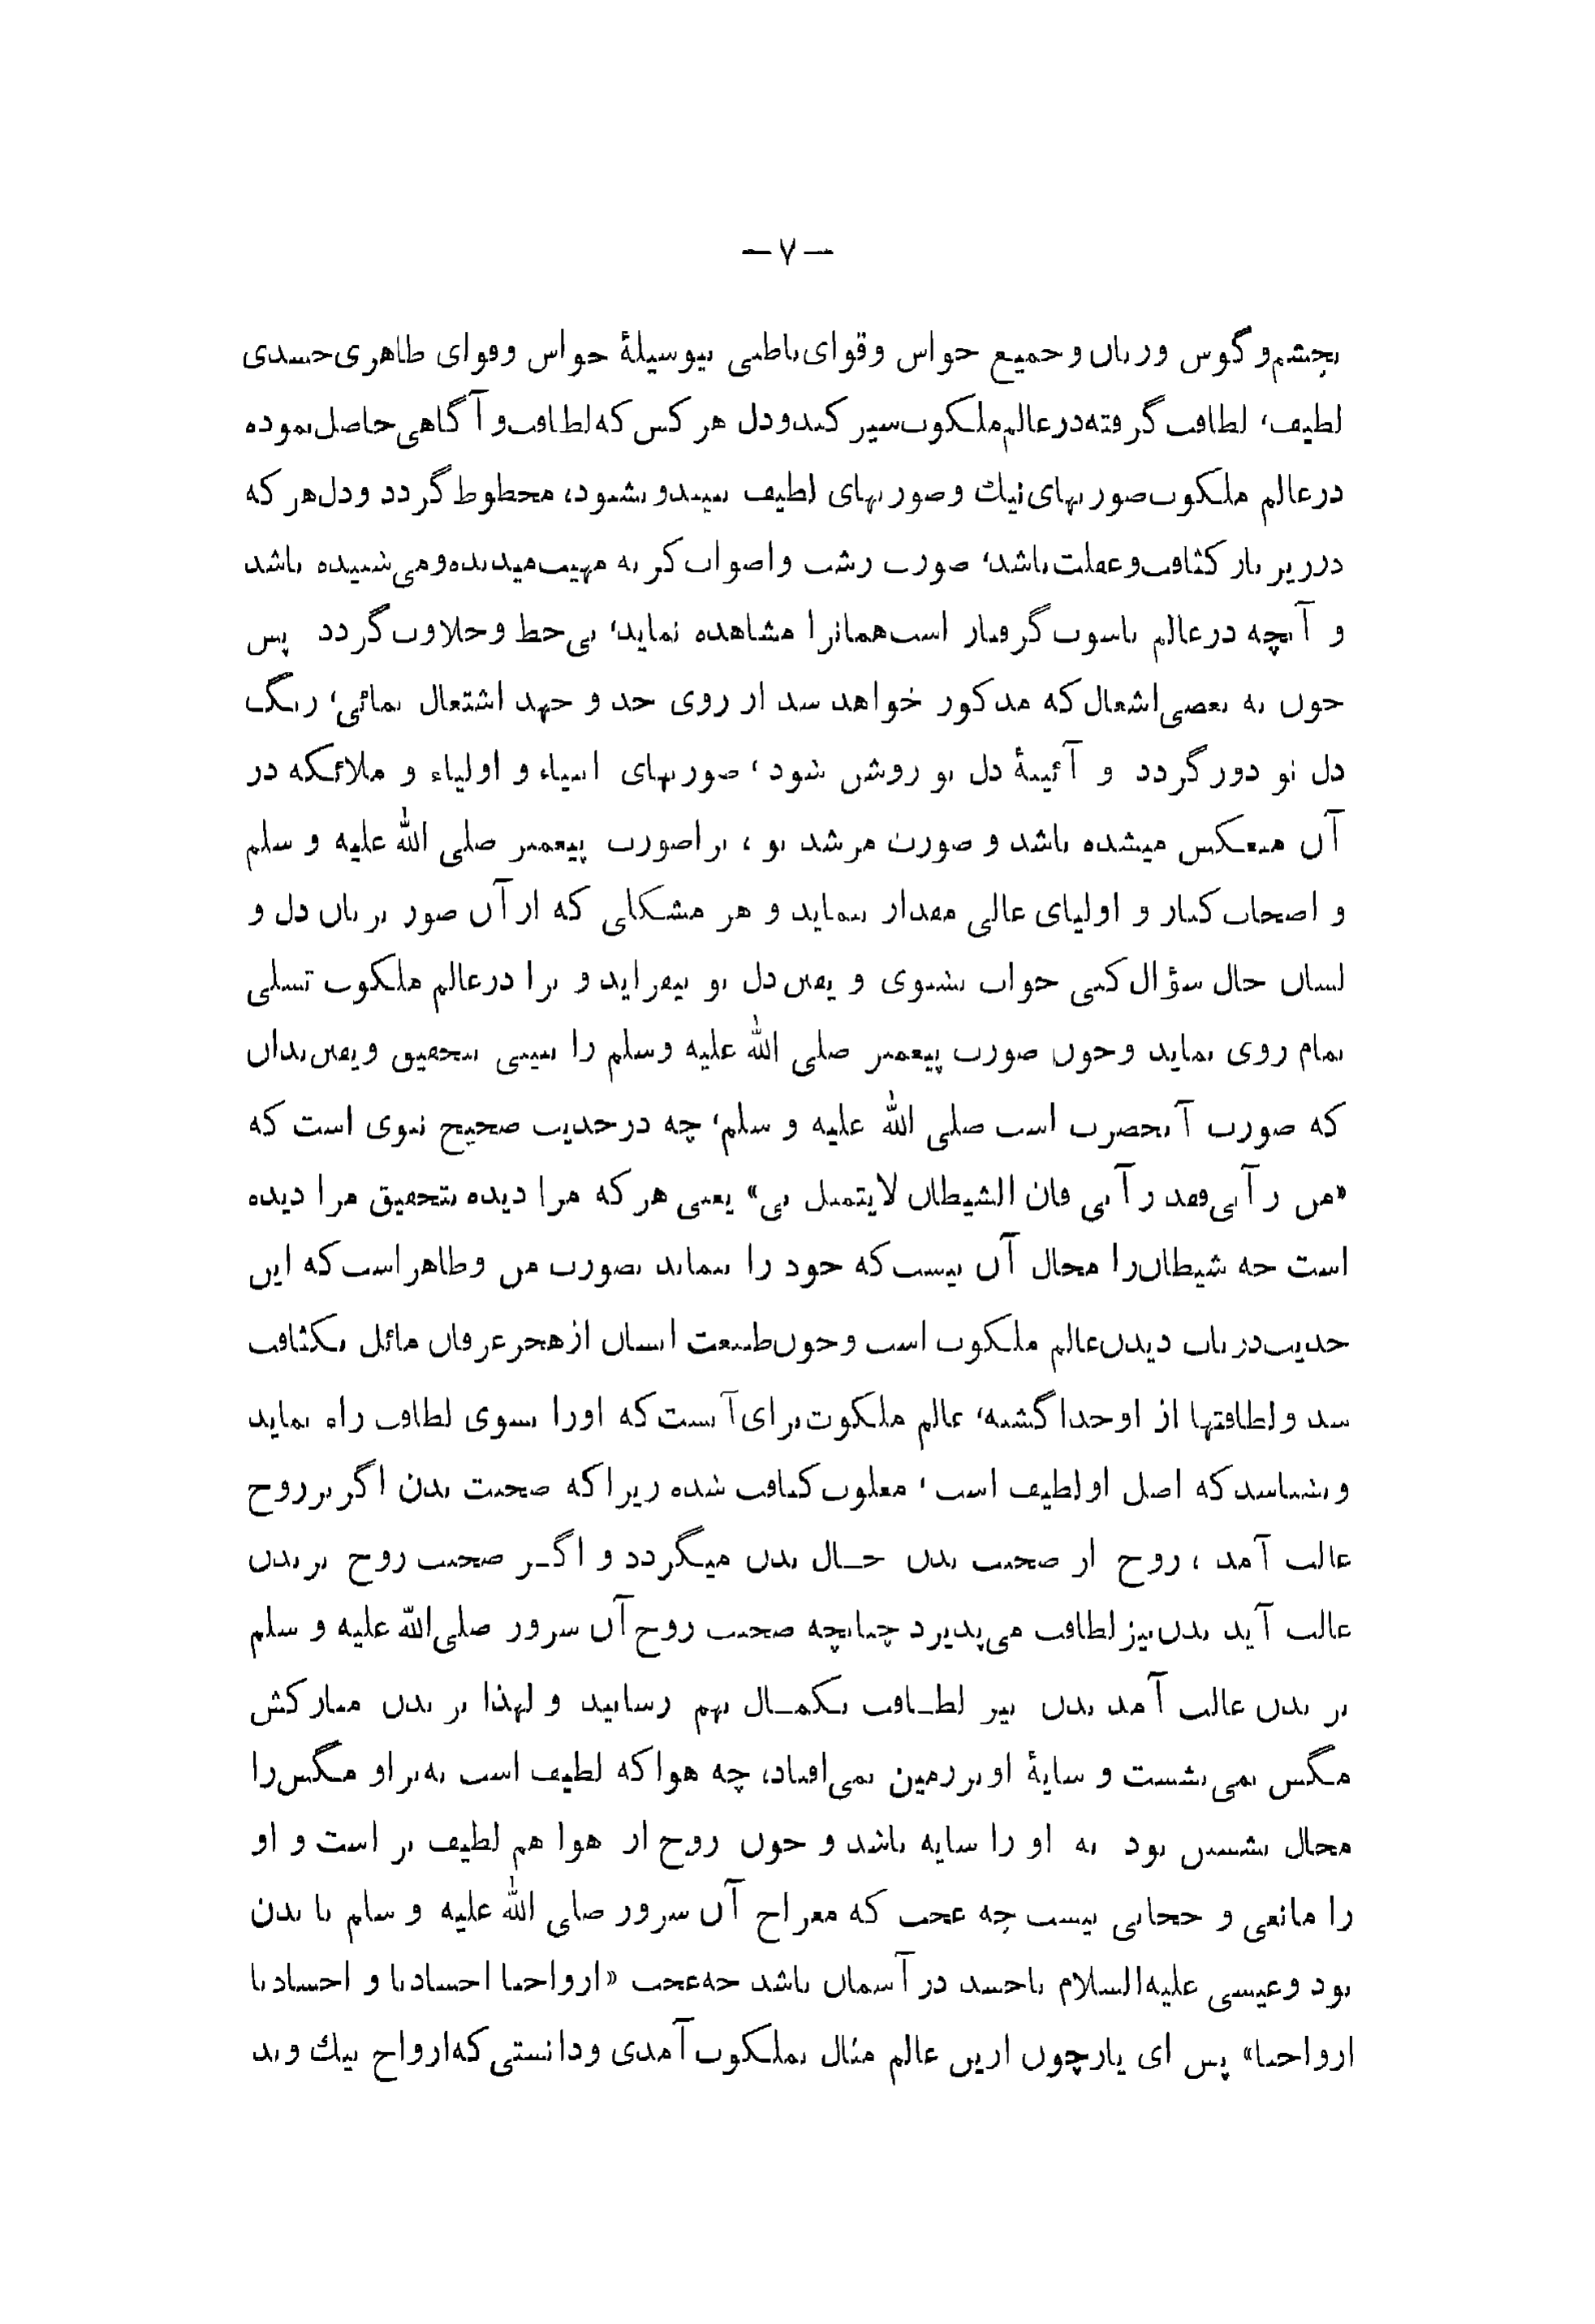 —۷—
بچشم و گوش و زبان و جمیع حواس و قوای باطنی بیوسیلهٔ حواس و قوای ظاهری جسدی
لطیف، لطافت گرفته در عالم ملکوت سیر کند و دل هر کس که لطافت و آگاهی حاصل نموده
در عالم ملکوت صورتهای نیك و صورتهای لطیف ببیند و بشنود، محظوظ گردد و دل هر که
در زیر بار کثافت و غفلت باشد، صورت زشت و اصوات کریه مهیب میدیده و می شنیده باشد
و آنچه در عالم ناسوت گرفتار است همانرا مشاهده نماید، بی حظ و حلاوت گردد پس
چون به بعضی اشغال که مذکور خواهد شد از روی جد و جهد اشتغال نمائی، زنگ
دل تو دور گردد و آئینهٔ دل تو روشن شود، صورتهای انبیاء و اولیاء و ملائکه در
آن منعکس میشده باشد و صورت مرشد تو، ترا صورت پیغمبر صلی الله علیه و سلم
و اصحاب کبار و اولیای عالی مقدار بنماید و هر مشکلی که از آن صور بزبان دل و
لسان حال سؤال کنی جواب بشنوی و یقین دل تو بیفزاید و ترا در عالم ملکوت تسلی
تمام روی نماید و چون صورت پیغمبر صلی الله علیه وسلم را ببینی بتحقیق و یقین بدان
که صورت آنحضرت است صلی الله علیه و سلم، چه در حدیث صحیح نبوی است که
«من رآنی فقد رآنی فان الشیطان لایتمثل بی» یعنی هر که مرا دیده بتحقیق مرا دیده
است چه شیطان را مجال آن نیست که خود را بنماید بصورت من و ظاهر است که این
حدیث در باب دیدن عالم ملکوت است و چون طبیعت انسان از هجر عرفان مائل بکثافت
شد و لطافتها از او جدا گشته، عالم ملکوت برای آنست که اورا بسوی لطافت راه نماید
و بشناسد که اصل او لطیف است، مغلوب کثافت شده زیرا که صحبت بدن اگر بر روح
غالب آمد، روح از صحبت بدن حـال بدن میگردد و اگـر صحبت روح بر بدن
غالب آید بدن نیز لطافت می پذیرد چنانچه صحبت روح آن سرور صلی الله علیه و سلم
بر بدن غالب آمد بدن نیز لطـافت بکمـال بهم رسانید و لهذا بر بدن مبارکش
مگس نمی نشست و سایهٔ او بر زمین نمی افتاد، چه هوا که لطیف است نه بر او مگس را
مجال نشستن بود نه او را سایه باشد و چون روح از هوا هم لطیف تر است و او
را مانعی و حجابی نیست چه عجب که معراج آن سرور صلی الله علیه و سلم با بدن
بود و عیسی علیه السلام با جسد در آسمان باشد چه عجب «ارواحنا اجسادنا و اجسادنا
ارواحنا» پس ای یار چون ازین عالم مثال بملکوت آمدی و دانستی که ارواح نیك و بد